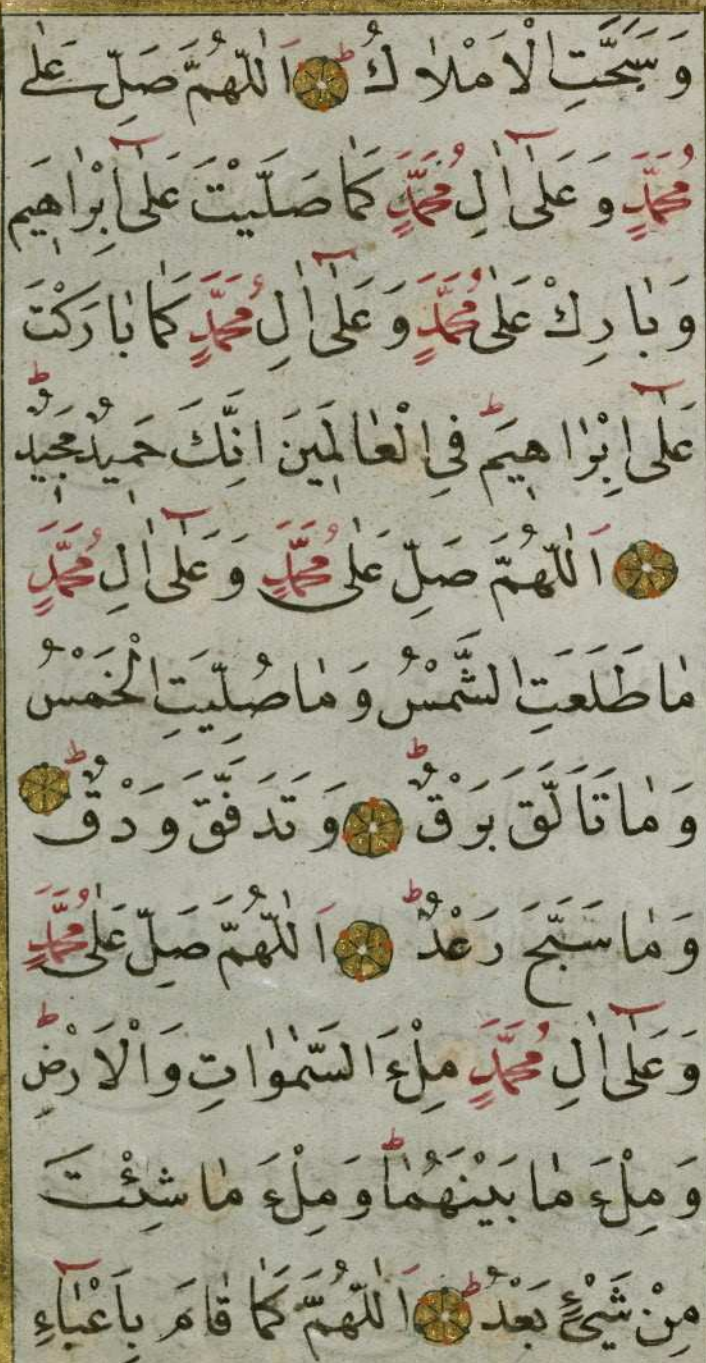 وَسَبَّحَتِ الْاَمْلَاكُ ط اَللّٰهُمَّ صَلِّ عَلٰى
مُحَمَّدٍ وَعَلٰٓى اٰلِ مُحَمَّدٍ كَمَا صَلَّيْتَ عَلٰٓى اِبْرٰاهِيمَ
وَبَارِكْ عَلٰى مُحَمَّدٍ وَعَلٰٓى اٰلِ مُحَمَّدٍ كَمَا بَارَكْتَ
عَلٰٓى اِبْرٰاهِيمَ ط فِي الْعٰالَمِينَ اِنَّكَ حَمِيدٌ مَجِيدٌ ط
اَللّٰهُمَّ صَلِّ عَلٰى مُحَمَّدٍ وَعَلٰٓى اٰلِ مُحَمَّدٍ
مٰا طَلَعَتِ الشَّمْسُ وَمٰا صُلِّيَتِ الْخَمْسُ
وَمٰا تَاَلَّقَ بَرْقٌ ط وَتَدَفَّقَ وَدْقٌ ط
وَمٰا سَبَّحَ رَعْدٌ ط اَللّٰهُمَّ صَلِّ عَلٰى مُحَمَّدٍ
وَعَلٰٓى اٰلِ مُحَمَّدٍ مِلْءَ السَّمٰوٰاتِ وَالْاَرْضِ ط
وَمِلْءَ مٰا بَيْنَهُمٰا ط وَمِلْءَ مٰا شِئْتَ
مِنْ شَيْءٍ بَعْدُ ط اَللّٰهُمَّ كَمٰا قٰامَ بِاَعْبٰٓاءِ